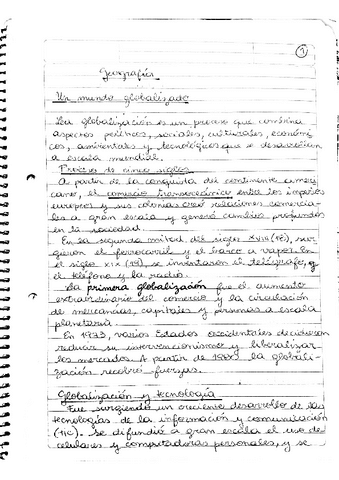 1
Geografía
Un mundo globalizado
La globalización es un proceso que combina
aspectos políticos, sociales, culturales, económi
cos, ambientales y tecnológicos que se desarrollan
a escala mundial.
Proceso de cinco siglos
A partir de la conquista del continente ameri
cano, el comercio transoceánico entre los imperios
europeos y sus colonias creó relaciones comercia-
les a gran escala y generó cambios profundos
en la sociedad.
En la segunda mitad del siglo XVIII (18), sur
gieron el ferrocarril y el barco a vapor. En
el siglo XIX (19), se inventaron el telégrafo, y
el teléfono y la radio.
La primera globalización fue el aumento
extraordinario del comercio y la circulación
de mercancías, capitales y personas a escala
planetaria.
En 1973, varios Estados occidentales decidieron
reducir su intervencionismo y liberalizar
los mercados. A partir de la globali-
zación recobró fuerzas.
Globalización y tecnología
Fue surgiendo un creciente desarrollo de las
tecnologías de la información y comunicación
(TIC). Se difundió a gran escala el uso de
celulares y computadoras personales, y se